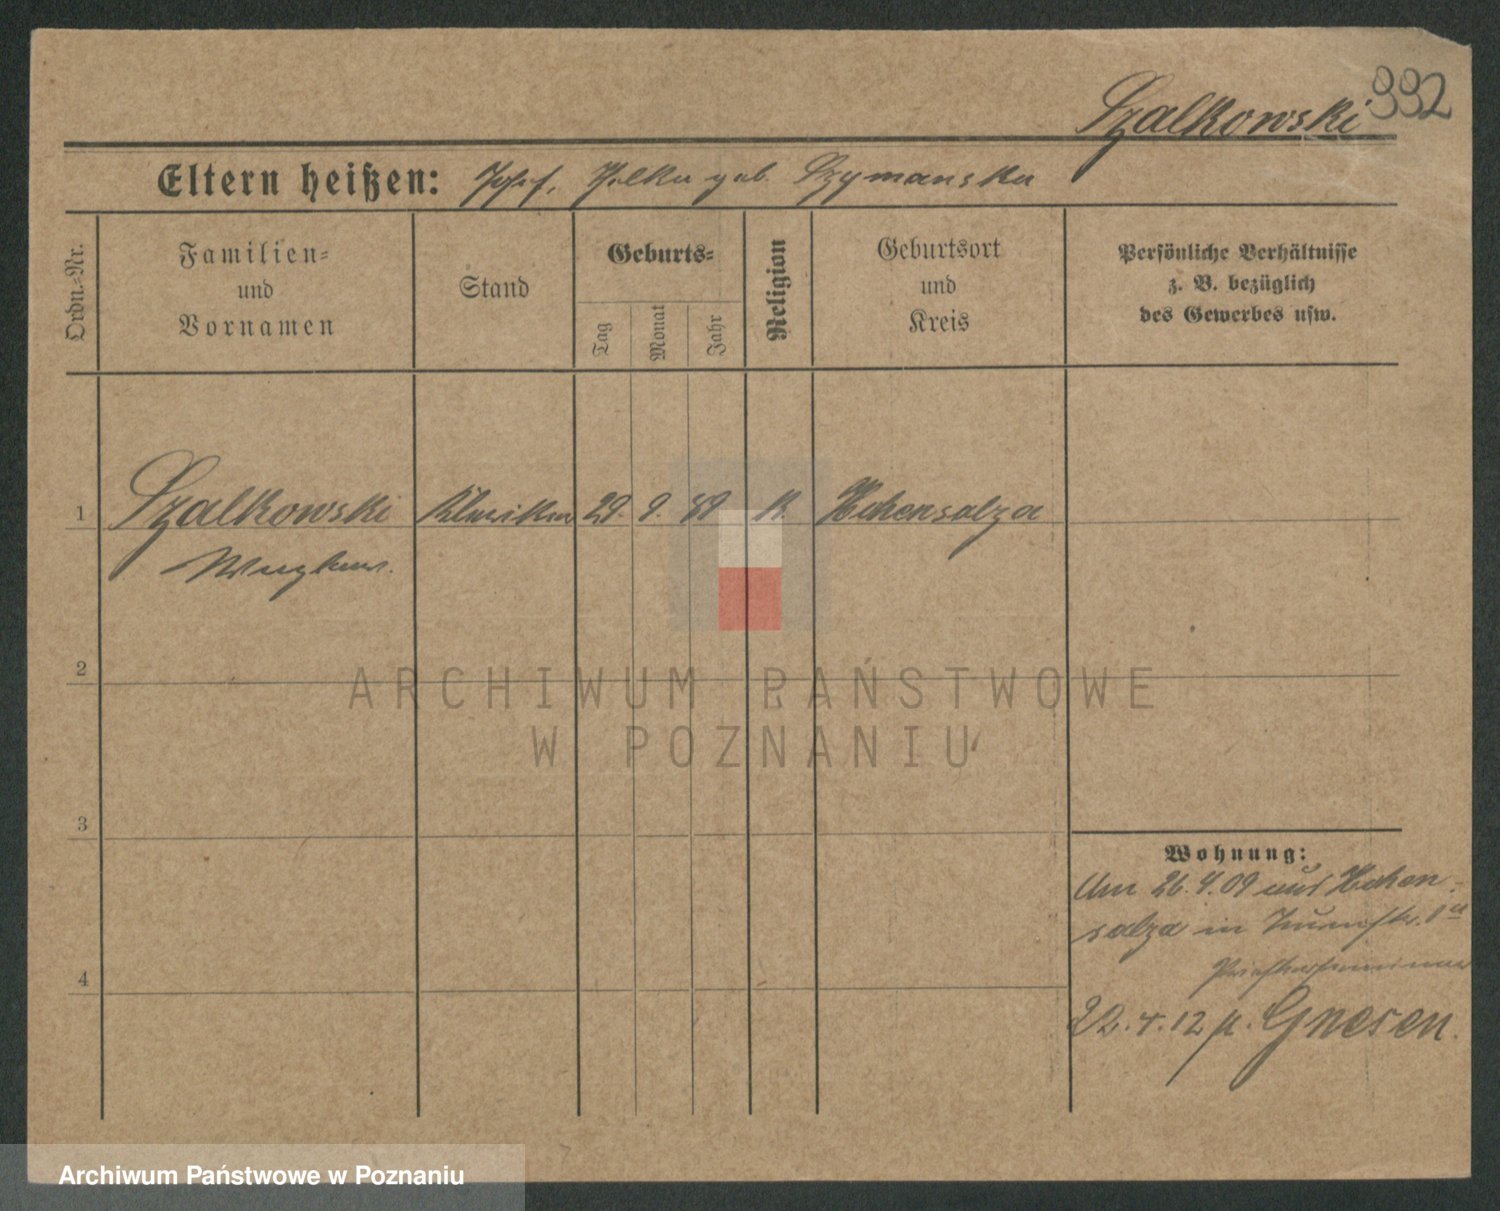 992
Szalkowski
Eltern heißen: Josef, geb. Szymanska
Ordn.-Nr.
Familien-
und
Vornamen
Stand
Geburts-
Tag
Monat
Jahr
Religion
Geburtsort
und
Kreis
Persönliche Verhältnisse
z. B. bezüglich
des Gewerbes usw.
1
Szalkowski Kleriker 29. 9. 89 K. Hohensalza
2
3
4
Wohnung:
Am 26.4.09 aus Hohen-
salza in
Priesterseminar
22.4.12 n. Gnesen.
ARCHIWUM PAŃSTWOWE
W POZNANIU
Archiwum Państwowe w Poznaniu